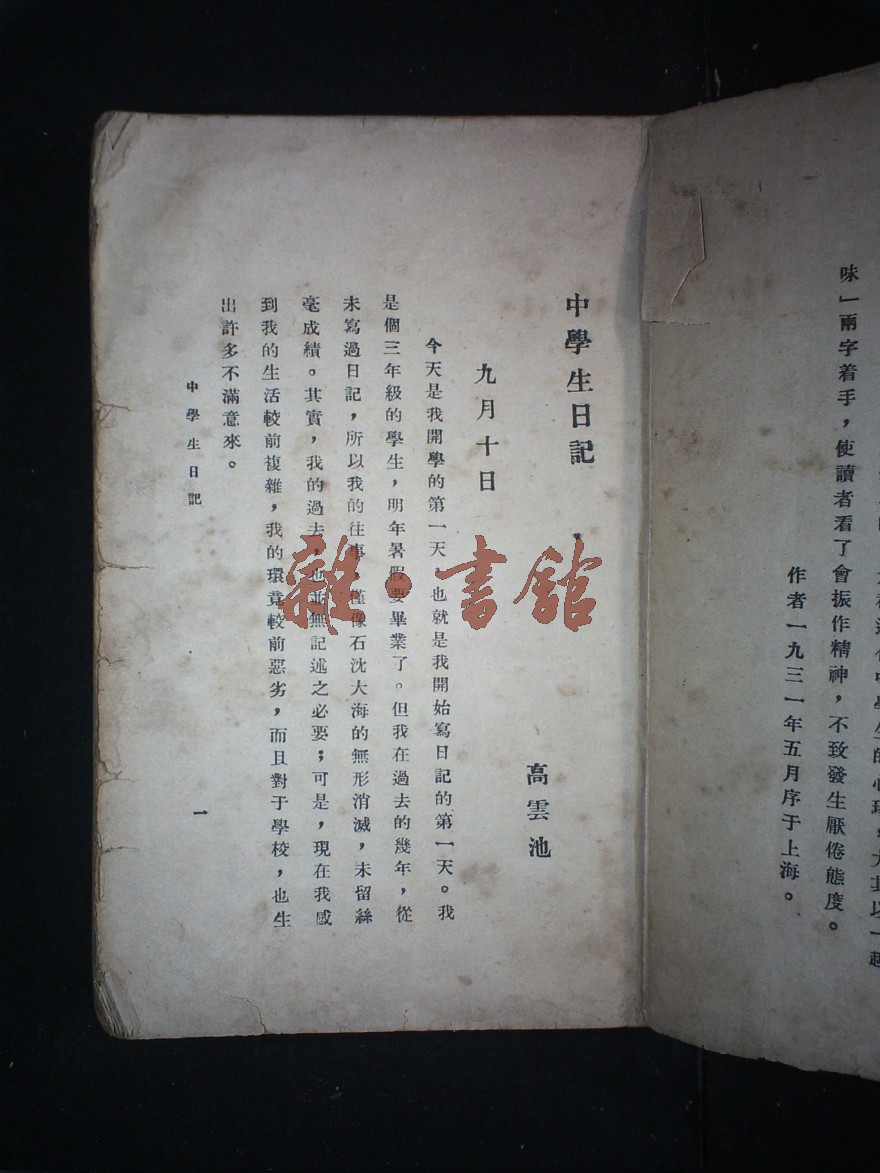 味」兩字着手，使讀者看了會振作精神，不致發生厭倦態度。
作者一九三一年五月序于上海。
中學生日記
高雲池
九月十日
今天是我開學的第一天，也就是我開始寫日記的第一天。我
是個三年級的學生，明年暑假要畢業了。但我在過去的幾年，從
未寫過日記，所以我的往事，僅像石沈大海的無形消滅，未留絲
毫成績。其實，我的過去，也並無記述之必要；可是，現在我感
到我的生活較前複雜，我的環竟較前惡劣，而且對于學校，也生
出許多不滿意來。
中學生日記
一
雜·書館